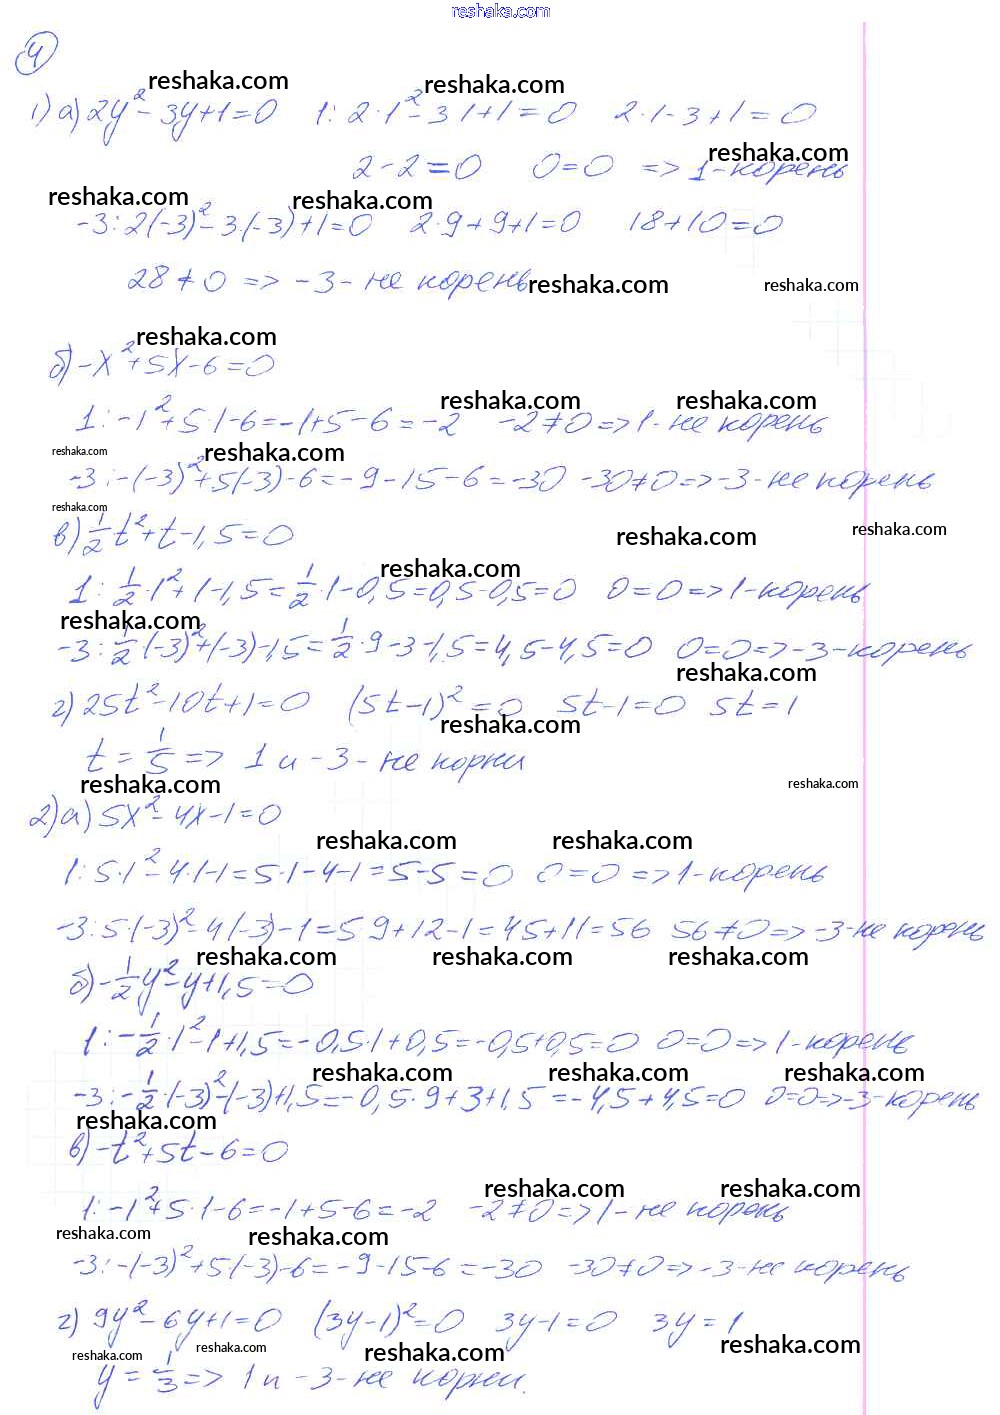 reshaka.com
4
reshaka.com reshaka.com
1) а) 2y² - 3y + 1 = 0 1: 2·1² - 3·1 + 1 = 0 2·1 - 3 + 1 = 0
2 - 2 = 0 0 = 0 => 1 - корень
reshaka.com
reshaka.com reshaka.com
-3: 2(-3)² - 3·(-3) + 1 = 0 2·9 + 9 + 1 = 0 18 + 10 = 0
28 ≠ 0 => -3 - не корень
reshaka.com reshaka.com
reshaka.com
б) -x² + 5x - 6 = 0
reshaka.com reshaka.com
1: -1² + 5·1 - 6 = -1 + 5 - 6 = -2 -2 ≠ 0 => 1 - не корень
reshaka.com reshaka.com
-3: -(-3)² + 5(-3) - 6 = -9 - 15 - 6 = -30 -30 ≠ 0 => -3 - не корень
reshaka.com
в) 1/2 t² + t - 1,5 = 0
reshaka.com reshaka.com
reshaka.com
1: 1/2·1² + 1 - 1,5 = 1/2·1 - 0,5 = 0,5 - 0,5 = 0 0 = 0 => 1 - корень
reshaka.com
-3: 1/2·(-3)² + (-3) - 1,5 = 1/2·9 - 3 - 1,5 = 4,5 - 4,5 = 0 0 = 0 => -3 - корень
reshaka.com
г) 25t² - 10t + 1 = 0 (5t - 1)² = 0 5t - 1 = 0 5t = 1
reshaka.com
t = 1/5 => 1 и -3 - не корни
reshaka.com reshaka.com
2) а) 5x² - 4x - 1 = 0
reshaka.com reshaka.com
1: 5·1² - 4·1 - 1 = 5·1 - 4 - 1 = 5 - 5 = 0 0 = 0 => 1 - корень
-3: 5·(-3)² - 4(-3) - 1 = 5·9 + 12 - 1 = 45 + 11 = 56 56 ≠ 0 => -3 - не корень
reshaka.com reshaka.com reshaka.com
б) -1/2 y² - y + 1,5 = 0
1: -1/2·1² - 1 + 1,5 = -0,5·1 + 0,5 = -0,5 + 0,5 = 0 0 = 0 => 1 - корень
reshaka.com reshaka.com reshaka.com
-3: -1/2·(-3)² - (-3) + 1,5 = -0,5·9 + 3 + 1,5 = -4,5 + 4,5 = 0 0 = 0 => -3 - корень
reshaka.com
в) -t² + 5t - 6 = 0
reshaka.com reshaka.com
1: -1² + 5·1 - 6 = -1 + 5 - 6 = -2 -2 ≠ 0 => 1 - не корень
reshaka.com reshaka.com
-3: -(-3)² + 5·(-3) - 6 = -9 - 15 - 6 = -30 -30 ≠ 0 => -3 - не корень
г) 9y² - 6y + 1 = 0 (3y - 1)² = 0 3y - 1 = 0 3y = 1
reshaka.com reshaka.com reshaka.com reshaka.com
y = 1/3 => 1 и -3 - не корни.